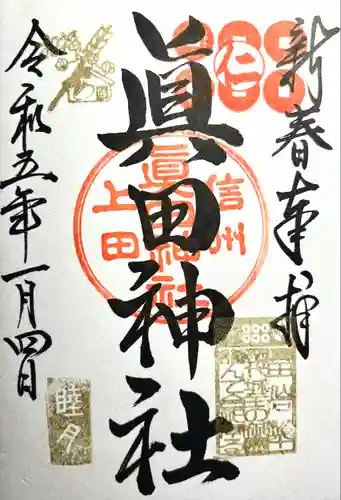 新春奉拝
仁
眞田神社
信州
眞田神社
上田
令和五年一月四日
睦月